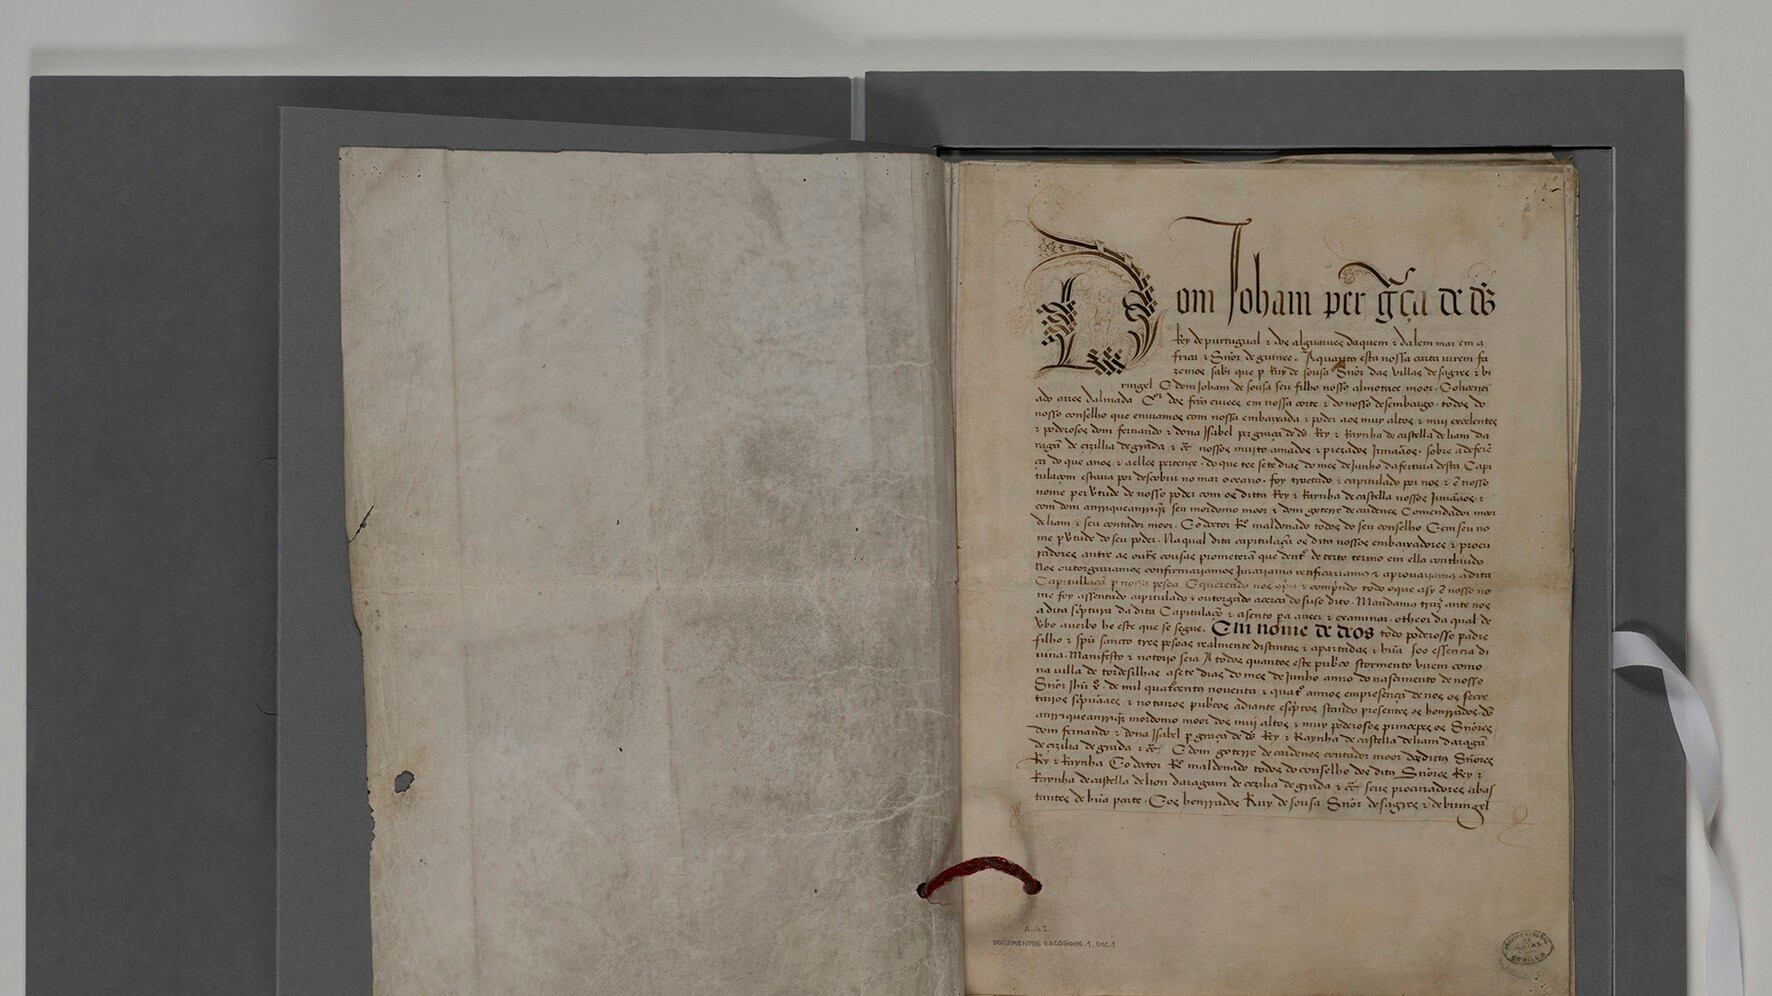 Dom Joham per g̃ça de d̃s
Rey de purtugual ⁊ dos algarues daquem ⁊ dalem mar em a
frica ⁊ Sñor de guinee. A quantos esta nossa carta virem fa
zemos sabr̃ que p Ruy de sousa Sñor das villas de sagres ⁊ bi
ringel E dom Joham de sousa seu filho nosso almotace moor. E o licenci
ado aires dalmada Cor dos feitos ciuees em nossa corte ⁊ do nosso desembargo. todos do
nosso conselho que enuiamos com nossa embaixada ⁊ poder aos muy altos ⁊ mui excelentes
⁊ poderosos dom fernando ⁊ dona Isabel per graça de ds̃ Rey ⁊ Raynha de castella de liam da
ragã de cizillia de grãda ⁊ c̃ nossos muito amados ⁊ prezados Irmaãos. sobre a deferẽ
ça do que a nos ⁊ a elles pertençe. do que tee sete dias do mes de Junho da feitura desta Capi
tulaçom estaua por descobrir no mar oceano. foy trautado ⁊ capitulado por nos ⁊ ẽ nosso
nome per ṽtude de nosso poder com os ditos Rey ⁊ Raynha de castella nossos Irmaãos ⁊
com dom anrrique anrriq̃z seu mordomo moor ⁊ dom goterre de cardenes Comendador mor
de liam ⁊ seu contador moor. E o doctor R° maldonado todos do seu conselho E em seu no
me p ṽtude do seu poder. Na qual dita capitulaçã os ditos nossos embaixadores ⁊ procu
radores antre as outras cousas prometerã que dentro de certo termo em ella conthiudo
Nos outorgariamos confirmariamos Jurariamos retificariamos ⁊ aprouariamos a dita
Capitullaçã p nossa pesoa. E querendo nos ⁊ comprindo todo o que asy ẽ nosso no
me foy assentido capitulado ⁊ outorgado acerca do suso dito. Mandamos trazer ante nos
a dita scriptura da dita Capitulaçõ ⁊ asento pa a ueer ⁊ examinar. o theor da qual de
ṽbo a uerbo he este que se segue. Em nome de deos todo poderosso padre
filho ⁊ sp̃u sancto tres pesoas realmente distintas ⁊ apartadas ⁊ hũa soo essencia di
uina. Manifesto ⁊ notorjo seia A todos quantos este pubrco stormento virem como
na villa de tordesilhas a sete dias do mes de Junho anno do nascimento de nosso
Sñor Jhũ xp̃o de mil quatrcentos nouenta ⁊ quatro annos em presença de nos os secre
tarios scripuaães ⁊ notarios pubrcos adiante escriptos stando presentes os honrrados dõ
anrrique anrriq̃z mordomo moor dos muj altos ⁊ muy poderosos principes os Sñores
dom fernando ⁊ dona Isabel p graça de ds̃ Rey ⁊ Raynha de castella de liam daragã
de cizilia de grada ⁊ c̃. E dom goterre de cardenes contador moor dos ditos Sñores
Rey ⁊ Raynha E o doctor R° maldonado todos do conselho dos ditos Sñores Rey ⁊
Raynha de castella de lion daragam de cezilia de grada ⁊ c̃ seus procuradores abas
tantes de hũa parte. E os honrrados Ruy de sousa Sñor de sagres ⁊ de biringel
A.G.I.
DOCUMENTOS ESCOGIDOS.1, DOC.1
SEVILLA